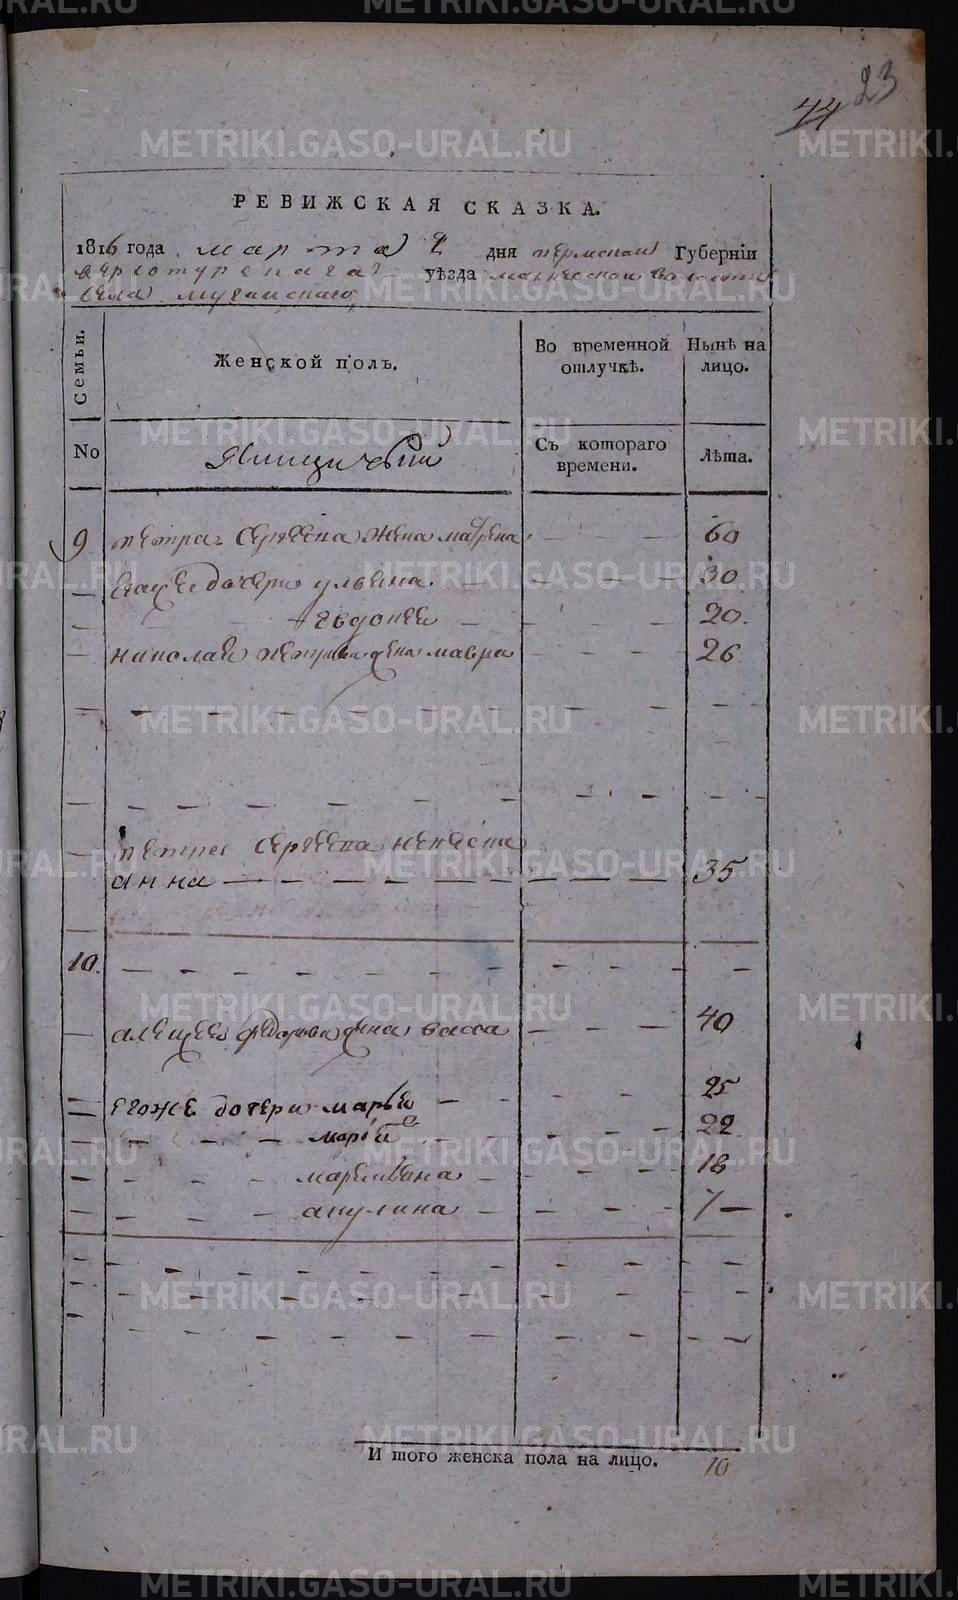 23
44
РЕВИЖСКАЯ СКАЗКА.
1816 года марта 2 дня пермской Губерніи
верхотурскага уѣзда волости
села мугайскаго
Семьи.
Женской полъ.
Во временной отлучкѣ.
Нынѣ на лицо.
No
Съ котораго времени.
Лѣта.
9 петра сергеева жена матрена 60
егоже дочери ульяна 30
евдокея 20.
николая петрова жена мавра 26
петра сергеева невеста
анна 35
10.
алексея федорова жена васса 40
егоже дочери марья 25
марья 22
маремьяна 18
акулина 7
И того женска пола на лицо. 10
METRIKI.GASO-URAL.RU